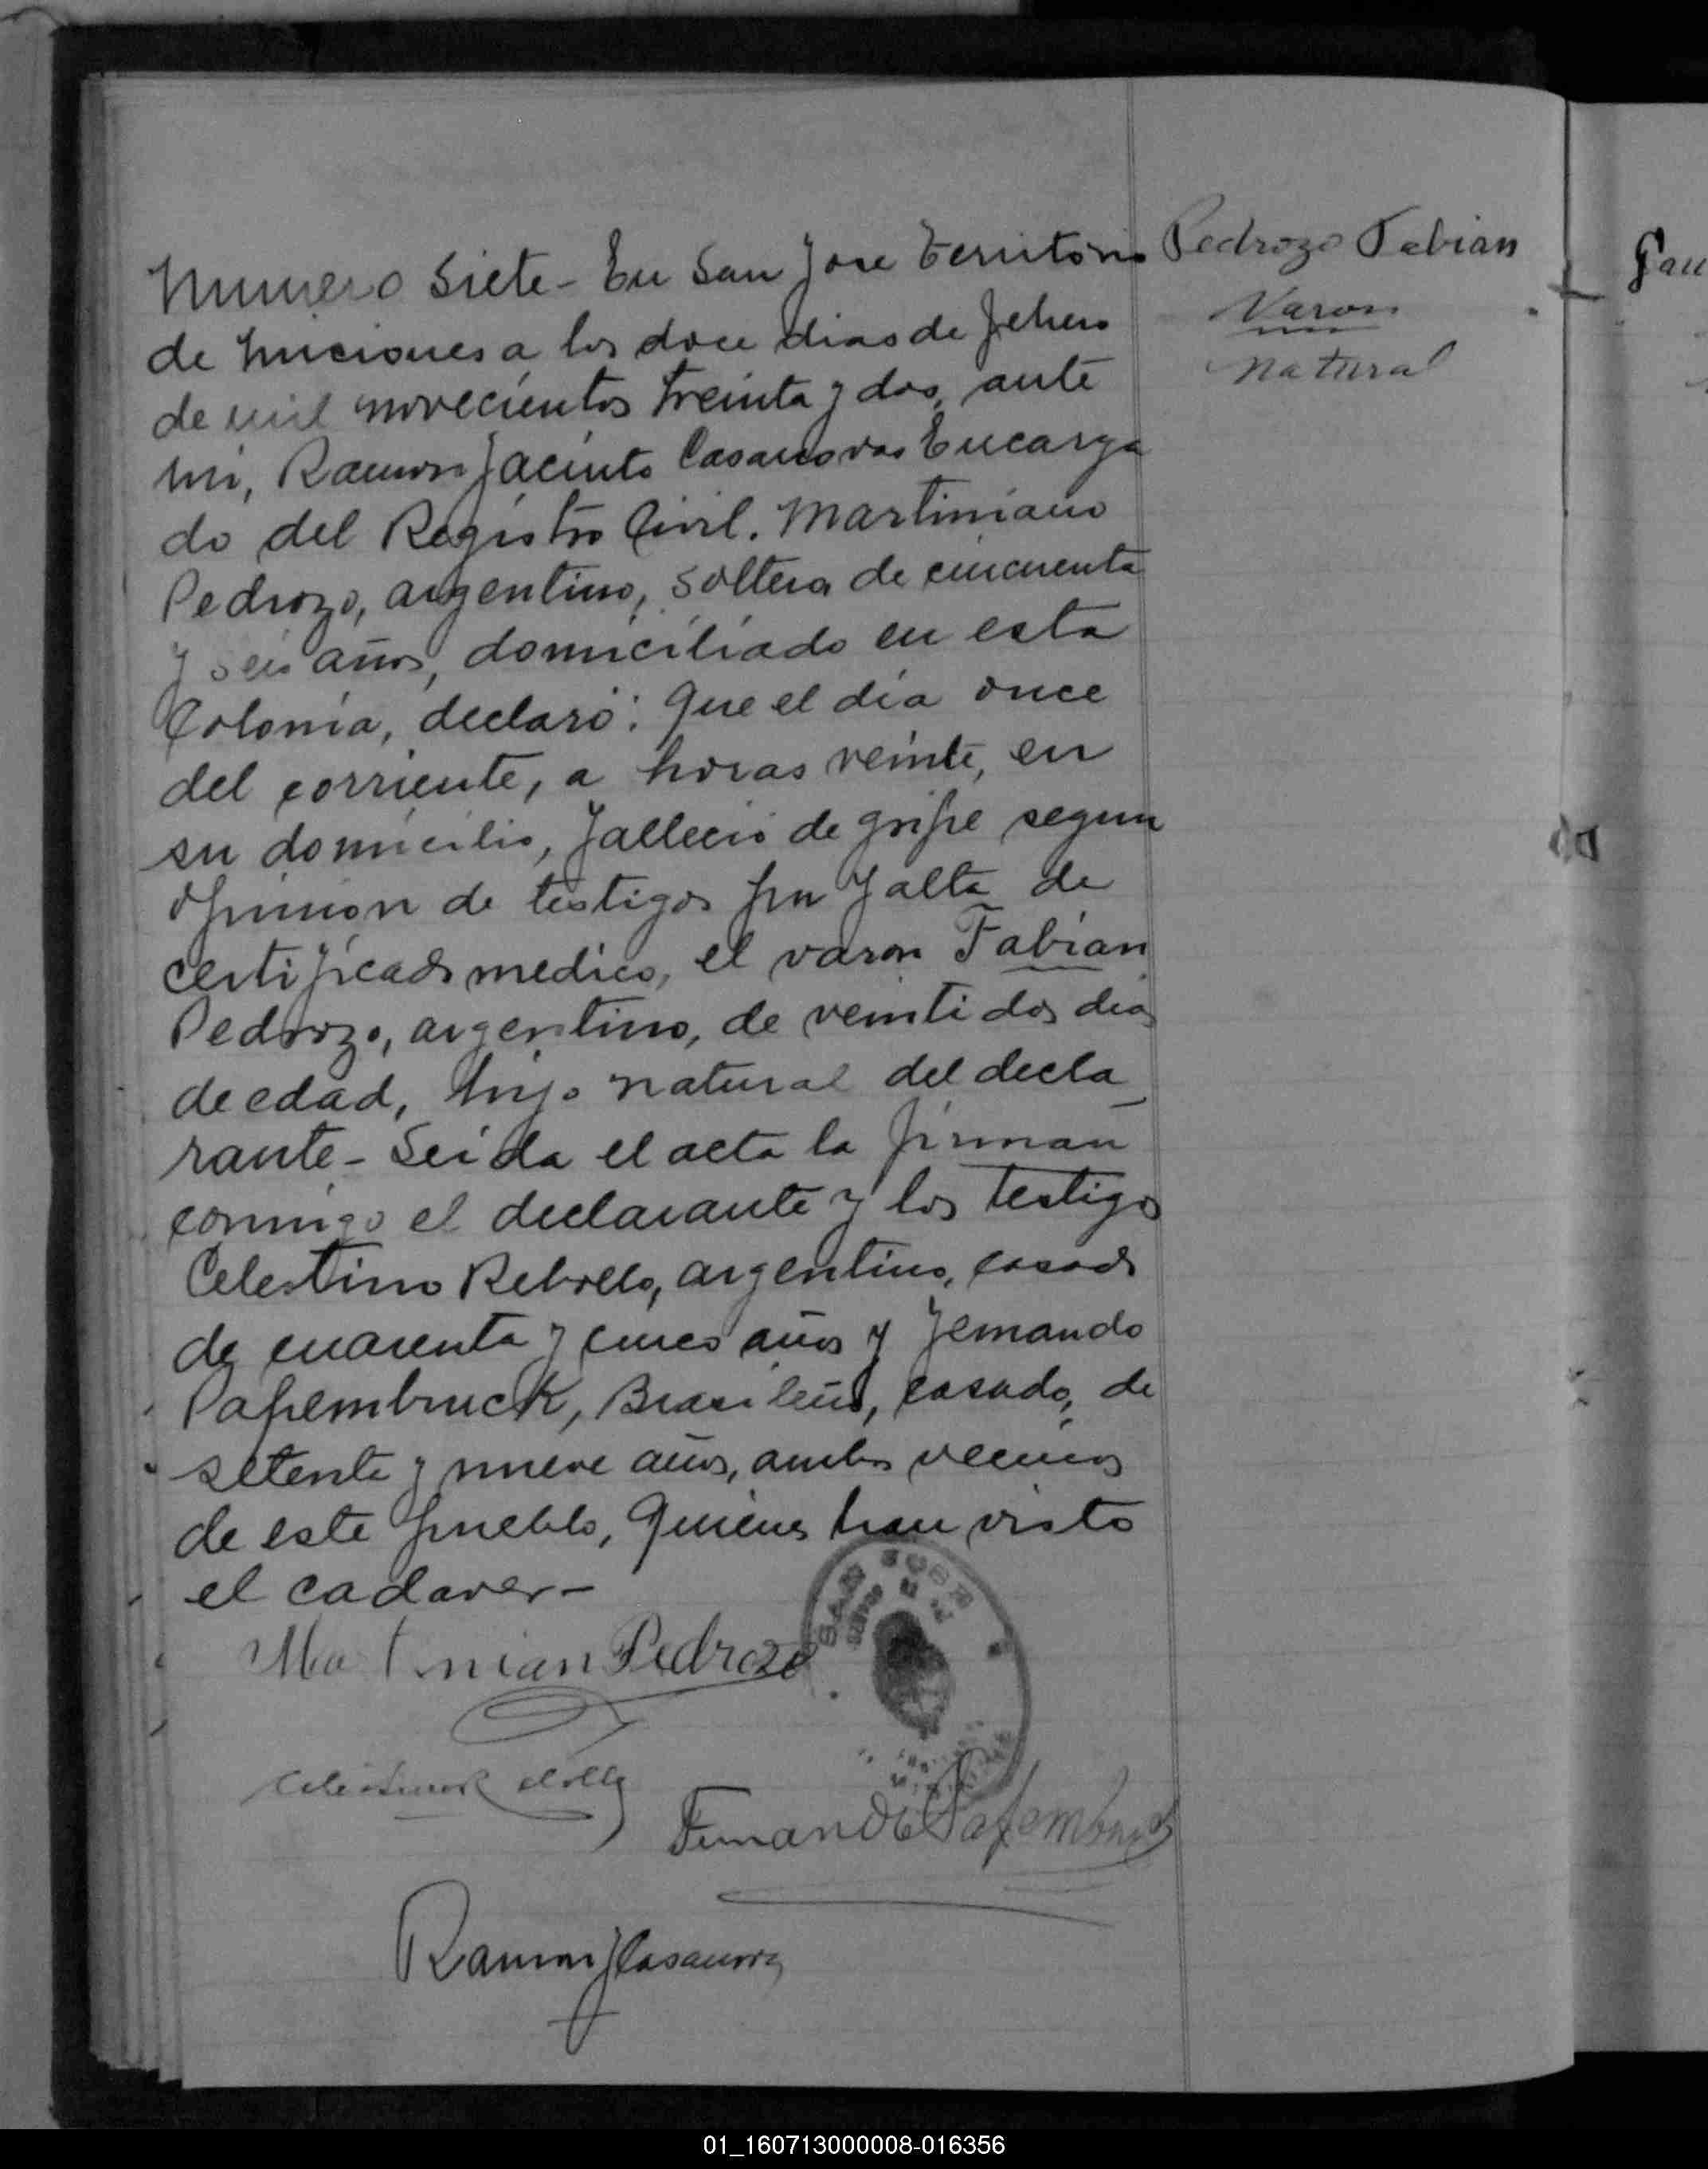 Numero Siete - En San Jose Territorio
de Miciones a los doce dias de febrero
de mil novecientos treinta y dos, ante
mi, Ramon Jacinto Casanovas Encarga
do del Registro Civil. Martiniano
Pedrozo, argentino, soltero de cincuenta
y seis años, domiciliado en esta
Colonia, declaró: Que el dia once
del corriente, a horas veinte, en
su domicilio, fallecio de gripe segun
opinion de testigos por falta de
certificado medico, el varon Fabian
Pedrozo, argentino, de veinti dos dias
de edad, hijo natural del decla
rante - Leida el acta la firman
conmigo el declarante y los testigos
Celestino Rebollo, argentino, casado
de cuarenta y cinco años y Fernando
Papembruck, Brasileño, casado, de
setenta y nueve años, ambos vecinos
de este pueblo, Quienes han visto
el cadaver -
Pedrozo Fabian
Varon
natural
SAN JOSE
Ma tinian Pedrozo
Fernando Papembruck
Ramon J Casanovas
01_160713000008-016356